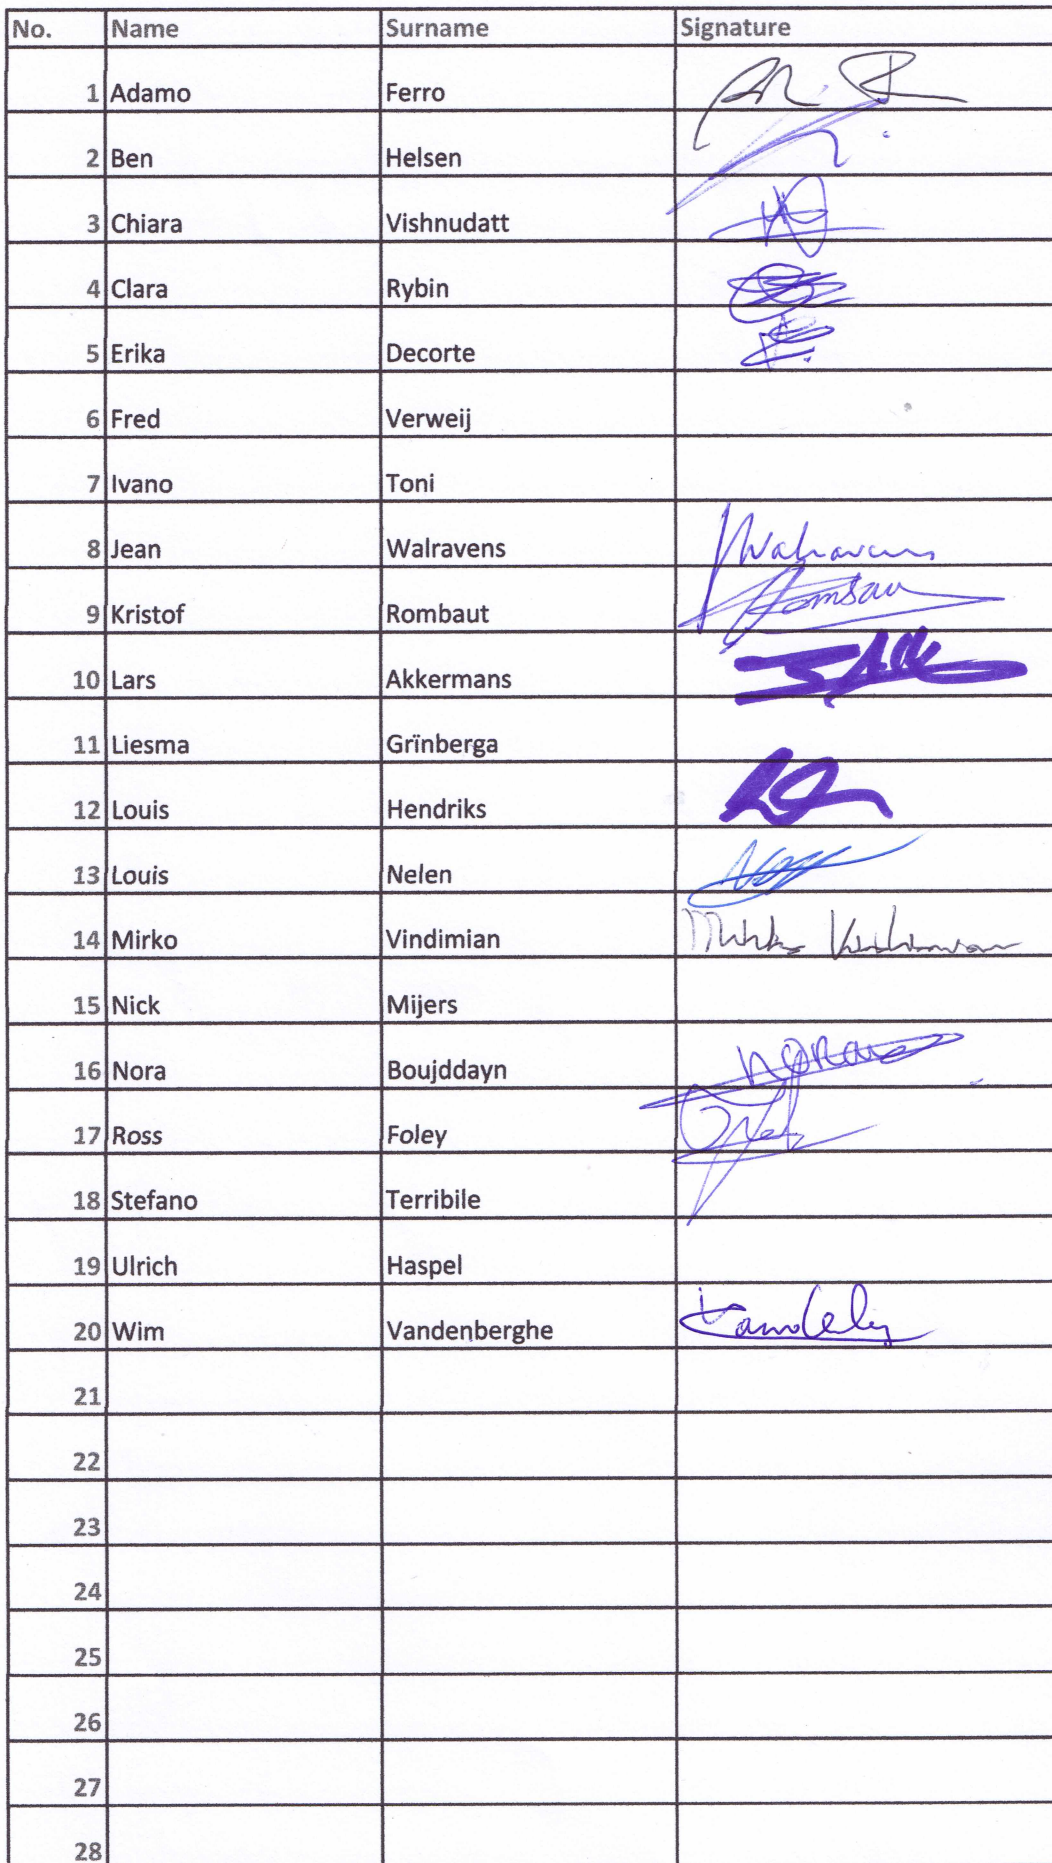 No. Name Surname Signature
1 Adamo Ferro
2 Ben Helsen
3 Chiara Vishnudatt
4 Clara Rybin
5 Erika Decorte
6 Fred Verweij
7 Ivano Toni
8 Jean Walravens Walravens
9 Kristof Rombaut
10 Lars Akkermans
11 Liesma Grïnberga
12 Louis Hendriks
13 Louis Nelen
14 Mirko Vindimian Mirko Vindimian
15 Nick Mijers
16 Nora Boujddayn Nora
17 Ross Foley
18 Stefano Terribile
19 Ulrich Haspel
20 Wim Vandenberghe
21
22
23
24
25
26
27
28